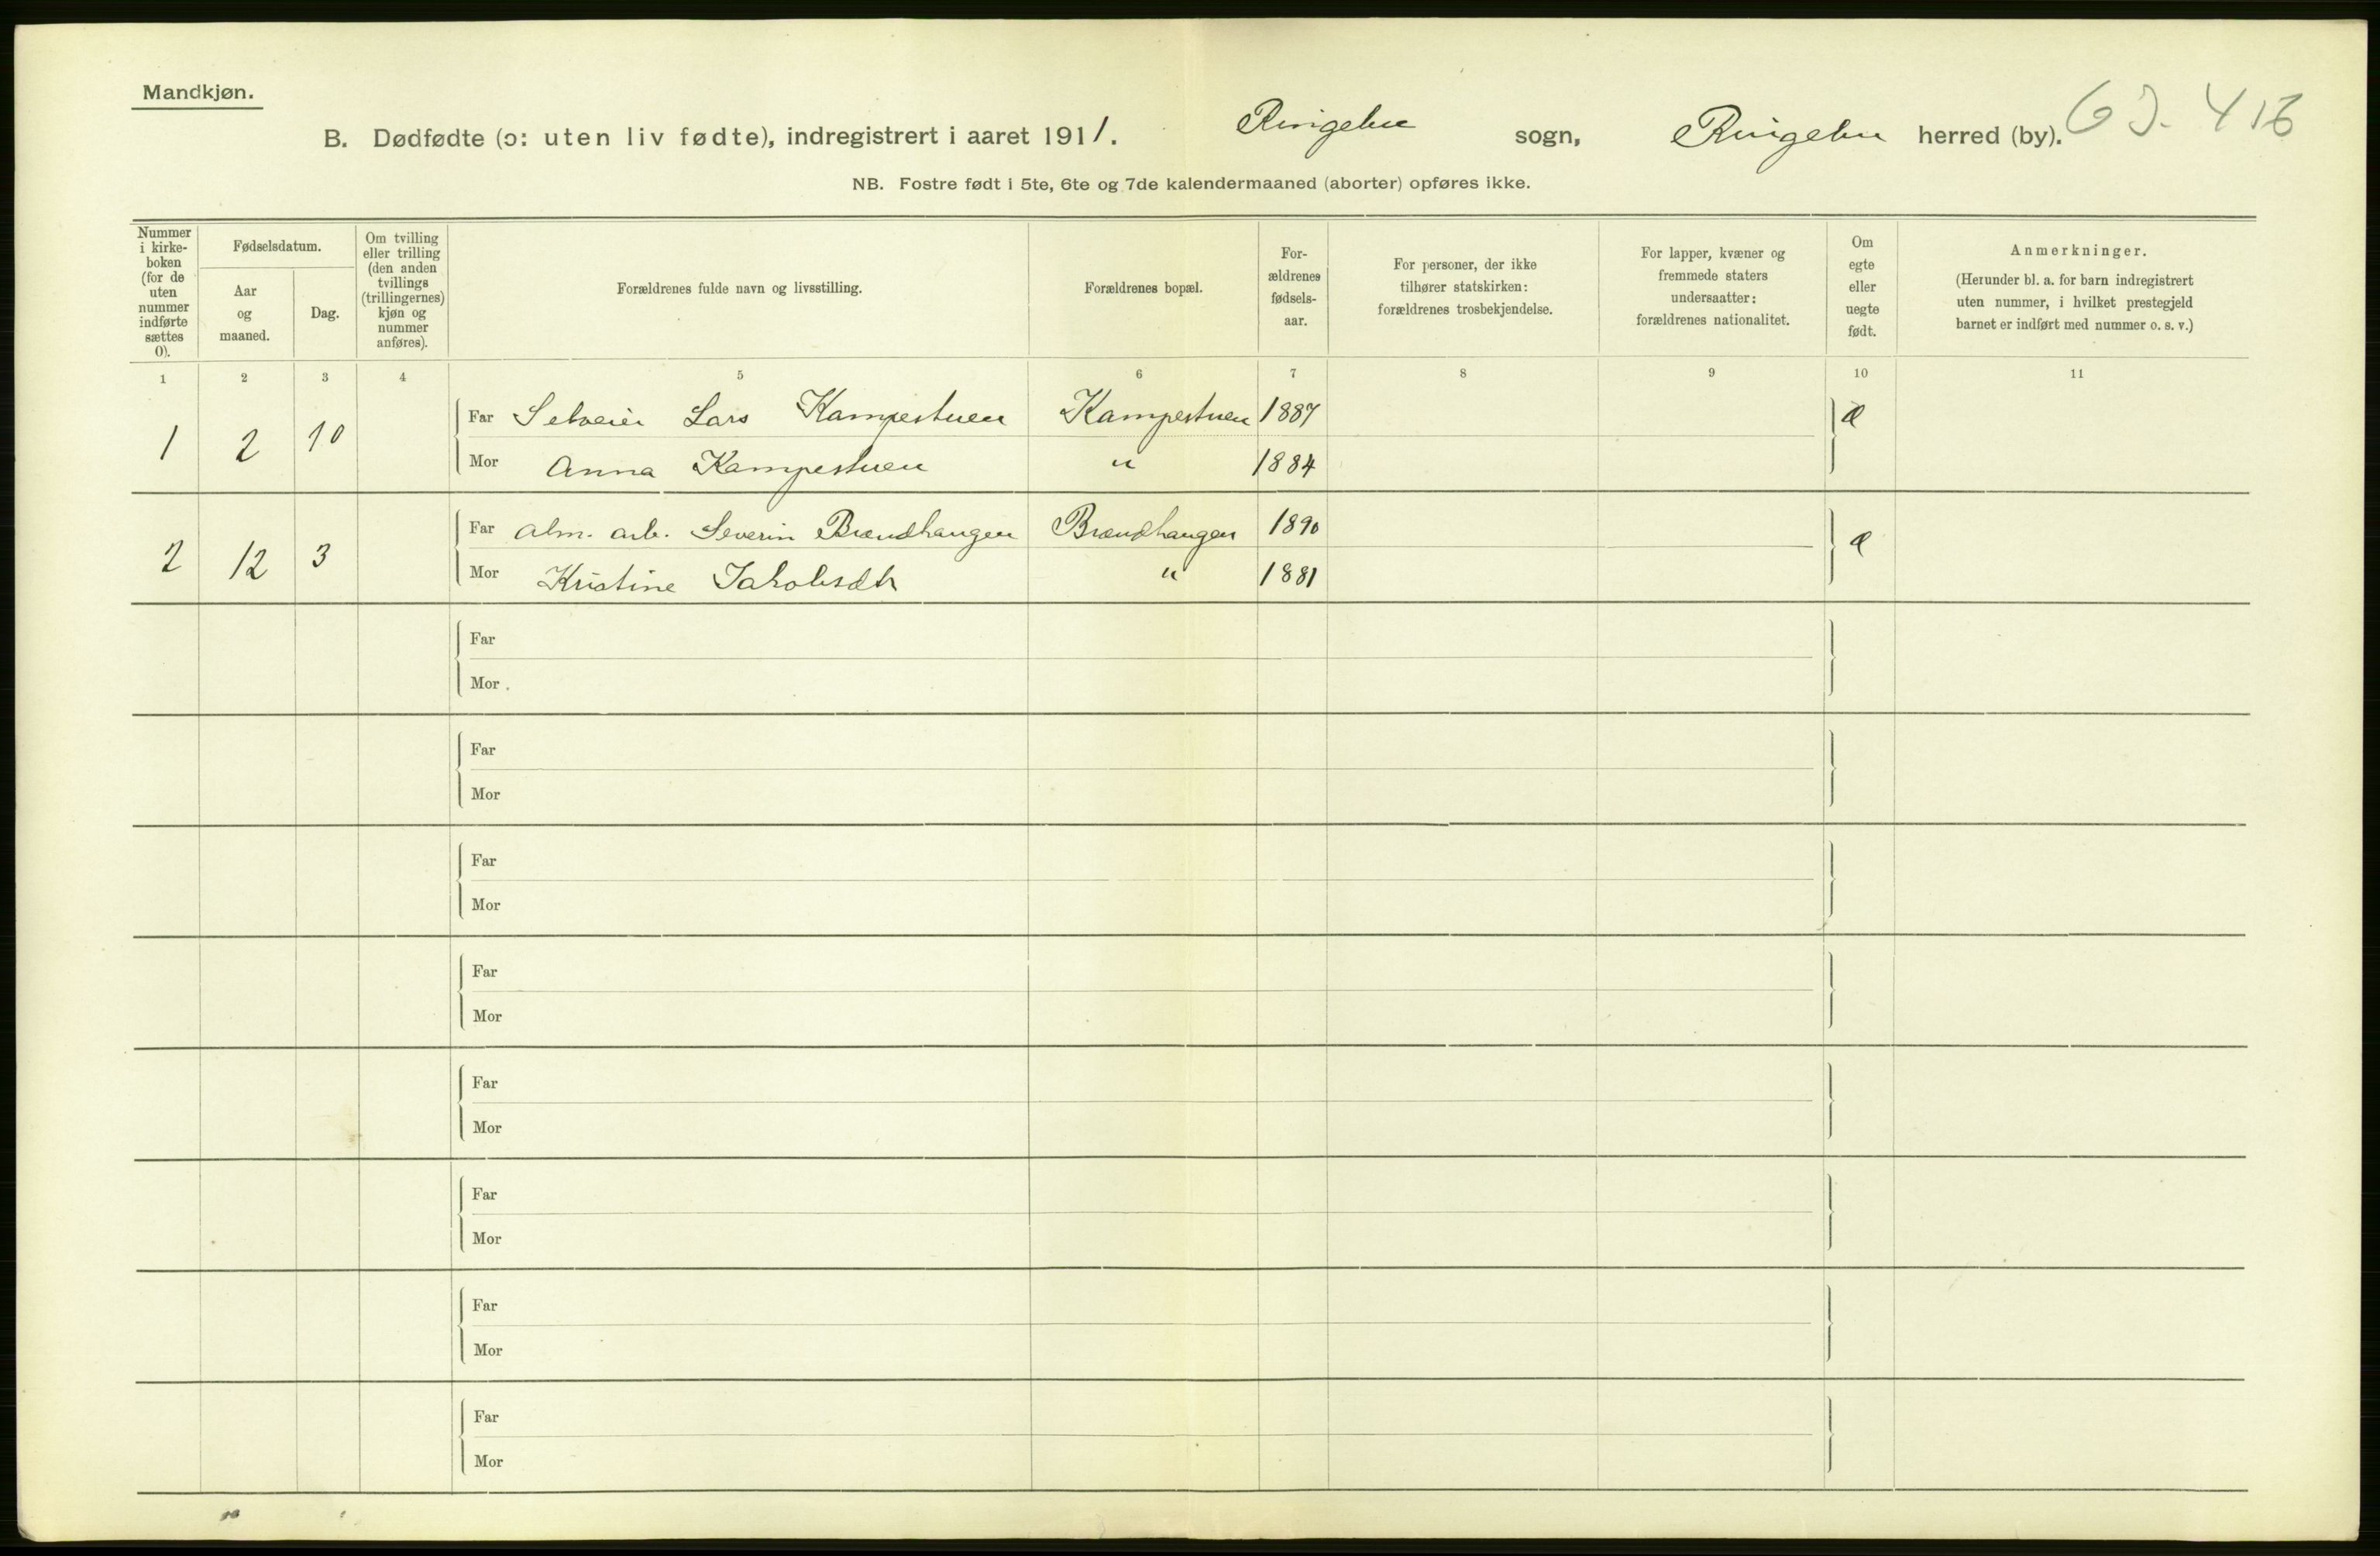 Mandkjøn.
B. Dødfødte (ɔ: uten liv fødte), indregistrert i aaret 1911. Ringebu sogn, Ringebu herred (by).
NB. Fostre født i 5te, 6te og 7de kalendermaaned (aborter) opføres ikke.
Nummer
i kirke-
boken
(for de
uten
nummer
indførte
sættes
0).
Fødselsdatum.
Aar
og
maaned.
Dag.
Om tvilling
eller trilling
(den anden
tvillings
(trillingernes)
kjøn og
nummer
anføres).
Forældrenes fulde navn og livsstilling.
Forældrenes bopæl.
For-
ældrenes
fødsels-
aar.
For personer, der ikke
tilhører statskirken:
forældrenes trosbekjendelse.
For lapper, kvæner og
fremmede staters
undersaatter:
forældrenes nationalitet.
Om
egte
eller
uegte
født.
Anmerkninger.
(Herunder bl. a. for barn indregistrert
uten nummer, i hvilket prestegjeld
barnet er indført med nummer o. s. v.)
1 2 3 4 5 6 7 8 9 10 11
1 2 10
Far Selveier Lars Kampestuen Kampestuen 1887 æ
Mor Anna Kampestuen " 1884
2 12 3
Far Alm. arb. Severin Brændhaugen Brændhaugen 1890 æ
Mor Kristine Jakobsdtr " 1881
Far
Mor
Far
Mor
Far
Mor
Far
Mor
Far
Mor
Far
Mor
Far
Mor
Far
Mor